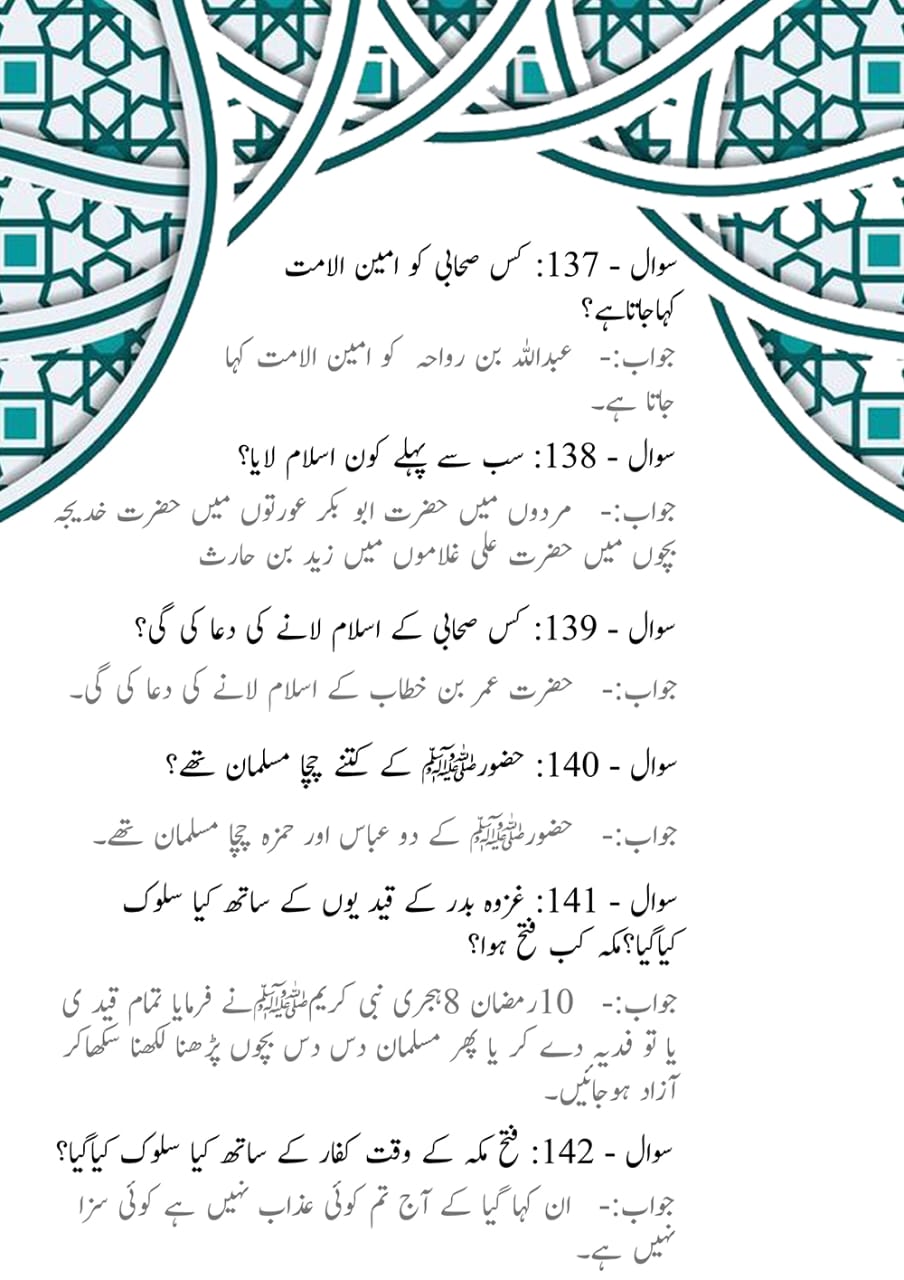 سوال - 137: کس صحابی کو امین الامت
کہاجاتاہے؟
جواب:- عبداللہ بن رواحہ کو امین الامت کہا
جاتا ہے۔
سوال - 138: سب سے پہلے کون اسلام لایا؟
جواب:- مردوں میں حضرت ابو بکر عورتوں میں حضرت خدیجہ
بچوں میں حضرت علی غلاموں میں زید بن حارث
سوال - 139: کس صحابی کے اسلام لانے کی دعا کی گی؟
جواب:- حضرت عمر بن خطاب کے اسلام لانے کی دعا کی گی۔
سوال - 140: حضورﷺ کے کتنے چچا مسلمان تھے؟
جواب:- حضورﷺ کے دو عباس اور حمزہ چچا مسلمان تھے۔
سوال - 141: غزوہ بدر کے قید یوں کے ساتھ کیا سلوک
کیاگیا؟مکہ کب فتح ہوا؟
جواب:- 10رمضان 8ہجری نبی کریمﷺنے فرمایا تمام قید ی
یا تو فدیہ دے کر یا پھر مسلمان دس دس بچوں پڑھنا لکھنا سکھاکر
آزاد ہوجائیں۔
سوال - 142: فتح مکہ کے وقت کفار کے ساتھ کیا سلوک کیاگیا؟
جواب:- ان کہا گیا کے آج تم کوئی عذاب نہیں ہے کوئی سزا
نہیں ہے۔